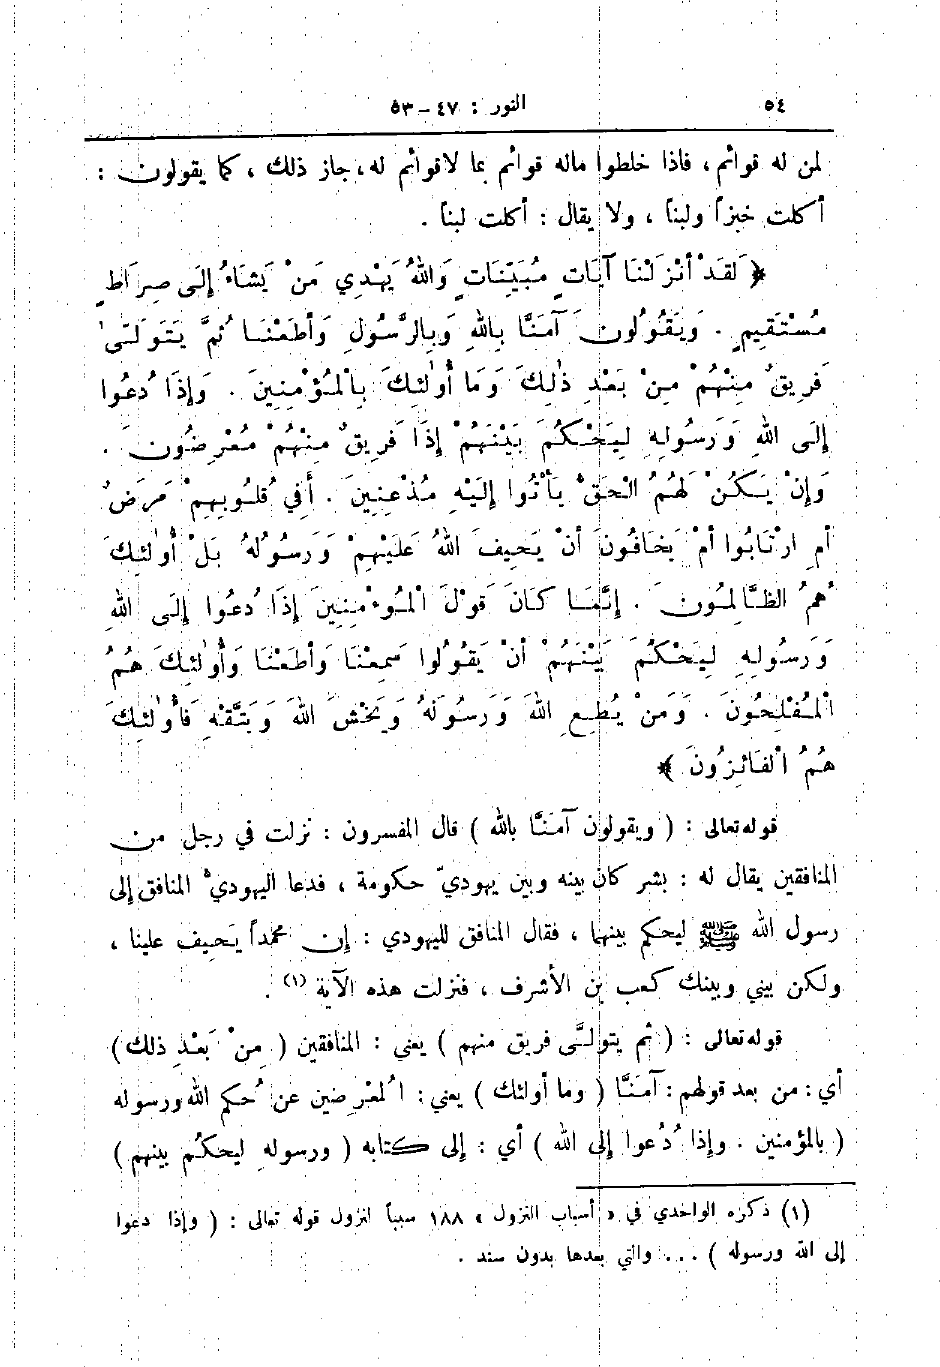 ٥٤ النور : ٤٧ – ٥٣
لمن له قوائم، فاذا خلطوا ماله قوائم بما لاقوائم له، جاز ذلك ، كما يقولون :
أكلت خبزاً ولبناً ، ولا يقال : أكلت لبناً .
﴿ لَقَدْ أَنْزَلْنَا آيَاتٍ مُبَيِّنَاتٍ وَاللهُ يَهْدِي مَنْ يَشَاءُ إِلَى صِرَاطٍ
مُسْتَقِيمٍ . وَيَقُولُونَ آمَنَّا بِاللهِ وَبِالرَّسُولِ وَأَطَعْنَا ثُمَّ يَتَوَلَّىٰ
فَرِيقٌ مِنْهُمْ مِنْ بَعْدِ ذٰلِكَ وَمَا أُولٰئِكَ بِالْمُؤْمِنِينَ . وَإِذَا دُعُوا
إِلَى اللهِ وَرَسُولِهِ لِيَحْكُمَ بَيْنَهُمْ إِذَا فَرِيقٌ مِنْهُمْ مُعْرِضُونَ .
وَإِنْ يَكُنْ لَهُمُ الْحَقُّ يَأْتُوا إِلَيْهِ مُذْعِنِينَ . أَفِي قُلُوبِهِمْ مَرَضٌ
أَمِ ارْتَابُوا أَمْ يَخَافُونَ أَنْ يَحِيفَ اللهُ عَلَيْهِمْ وَرَسُولُهُ بَلْ أُولٰئِكَ
هُمُ الظَّالِمُونَ . إِنَّمَا كَانَ قَوْلَ الْمُؤْمِنِينَ إِذَا دُعُوا إِلَى اللهِ
وَرَسُولِهِ لِيَحْكُمَ بَيْنَهُمْ أَنْ يَقُولُوا سَمِعْنَا وَأَطَعْنَا وَأُولٰئِكَ هُمُ
الْمُفْلِحُونَ . وَمَنْ يُطِعِ اللهَ وَرَسُولَهُ وَيَخْشَ اللهَ وَيَتَّقْهِ فَأُولٰئِكَ
هُمُ الْفَائِزُونَ ﴾
قوله تعالى : ( ويقولون آمَنَّا بالله ) قال المفسرون : نزلت في رجل من
المنافقين يقال له : بشر كان بينه وبين يهوديّ حكومة ، فدعا اليهوديُّ المنافق إلى
رسول الله ﷺ ليحكم بينهما ، فقال المنافق لليهودي : إن محمداً يَحيف علينا ،
ولكن بيني وبينك كعب بن الأشرف ، فنزلت هذه الآية (١) .
قوله تعالى : ( ثم يتولَّى فريق منهم ) يعني : المنافقين ( مِنْ بَعْدِ ذلك )
أي : من بعد قولهم : آمَنَّا ( وما أولئك ) يعني : المُعْرِضين عن حُكم الله ورسوله
( بالمؤمنين . وإذا دُعوا إلى الله ) أي : إلى كتابه ( ورسولهِ ليحكُم بينهم )
(١) ذكره الواحدي في « أسباب النزول » ١٨٨ سبباً لنزول قوله تعالى : ( وإذا دعوا
إلى الله ورسوله ) . . . والتي بعدها بدون سند .